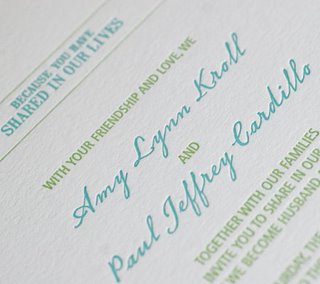 BECAUSE YOU HAVE
SHARED IN OUR LIVES
WITH YOUR FRIENDSHIP AND LOVE, WE
Amy Lynn Kroll
AND
Paul Jeffrey Cardillo
TOGETHER WITH OUR FAMILIES
INVITE YOU TO SHARE IN OUR
WE BECOME HUSBAND
SATURDAY, THE